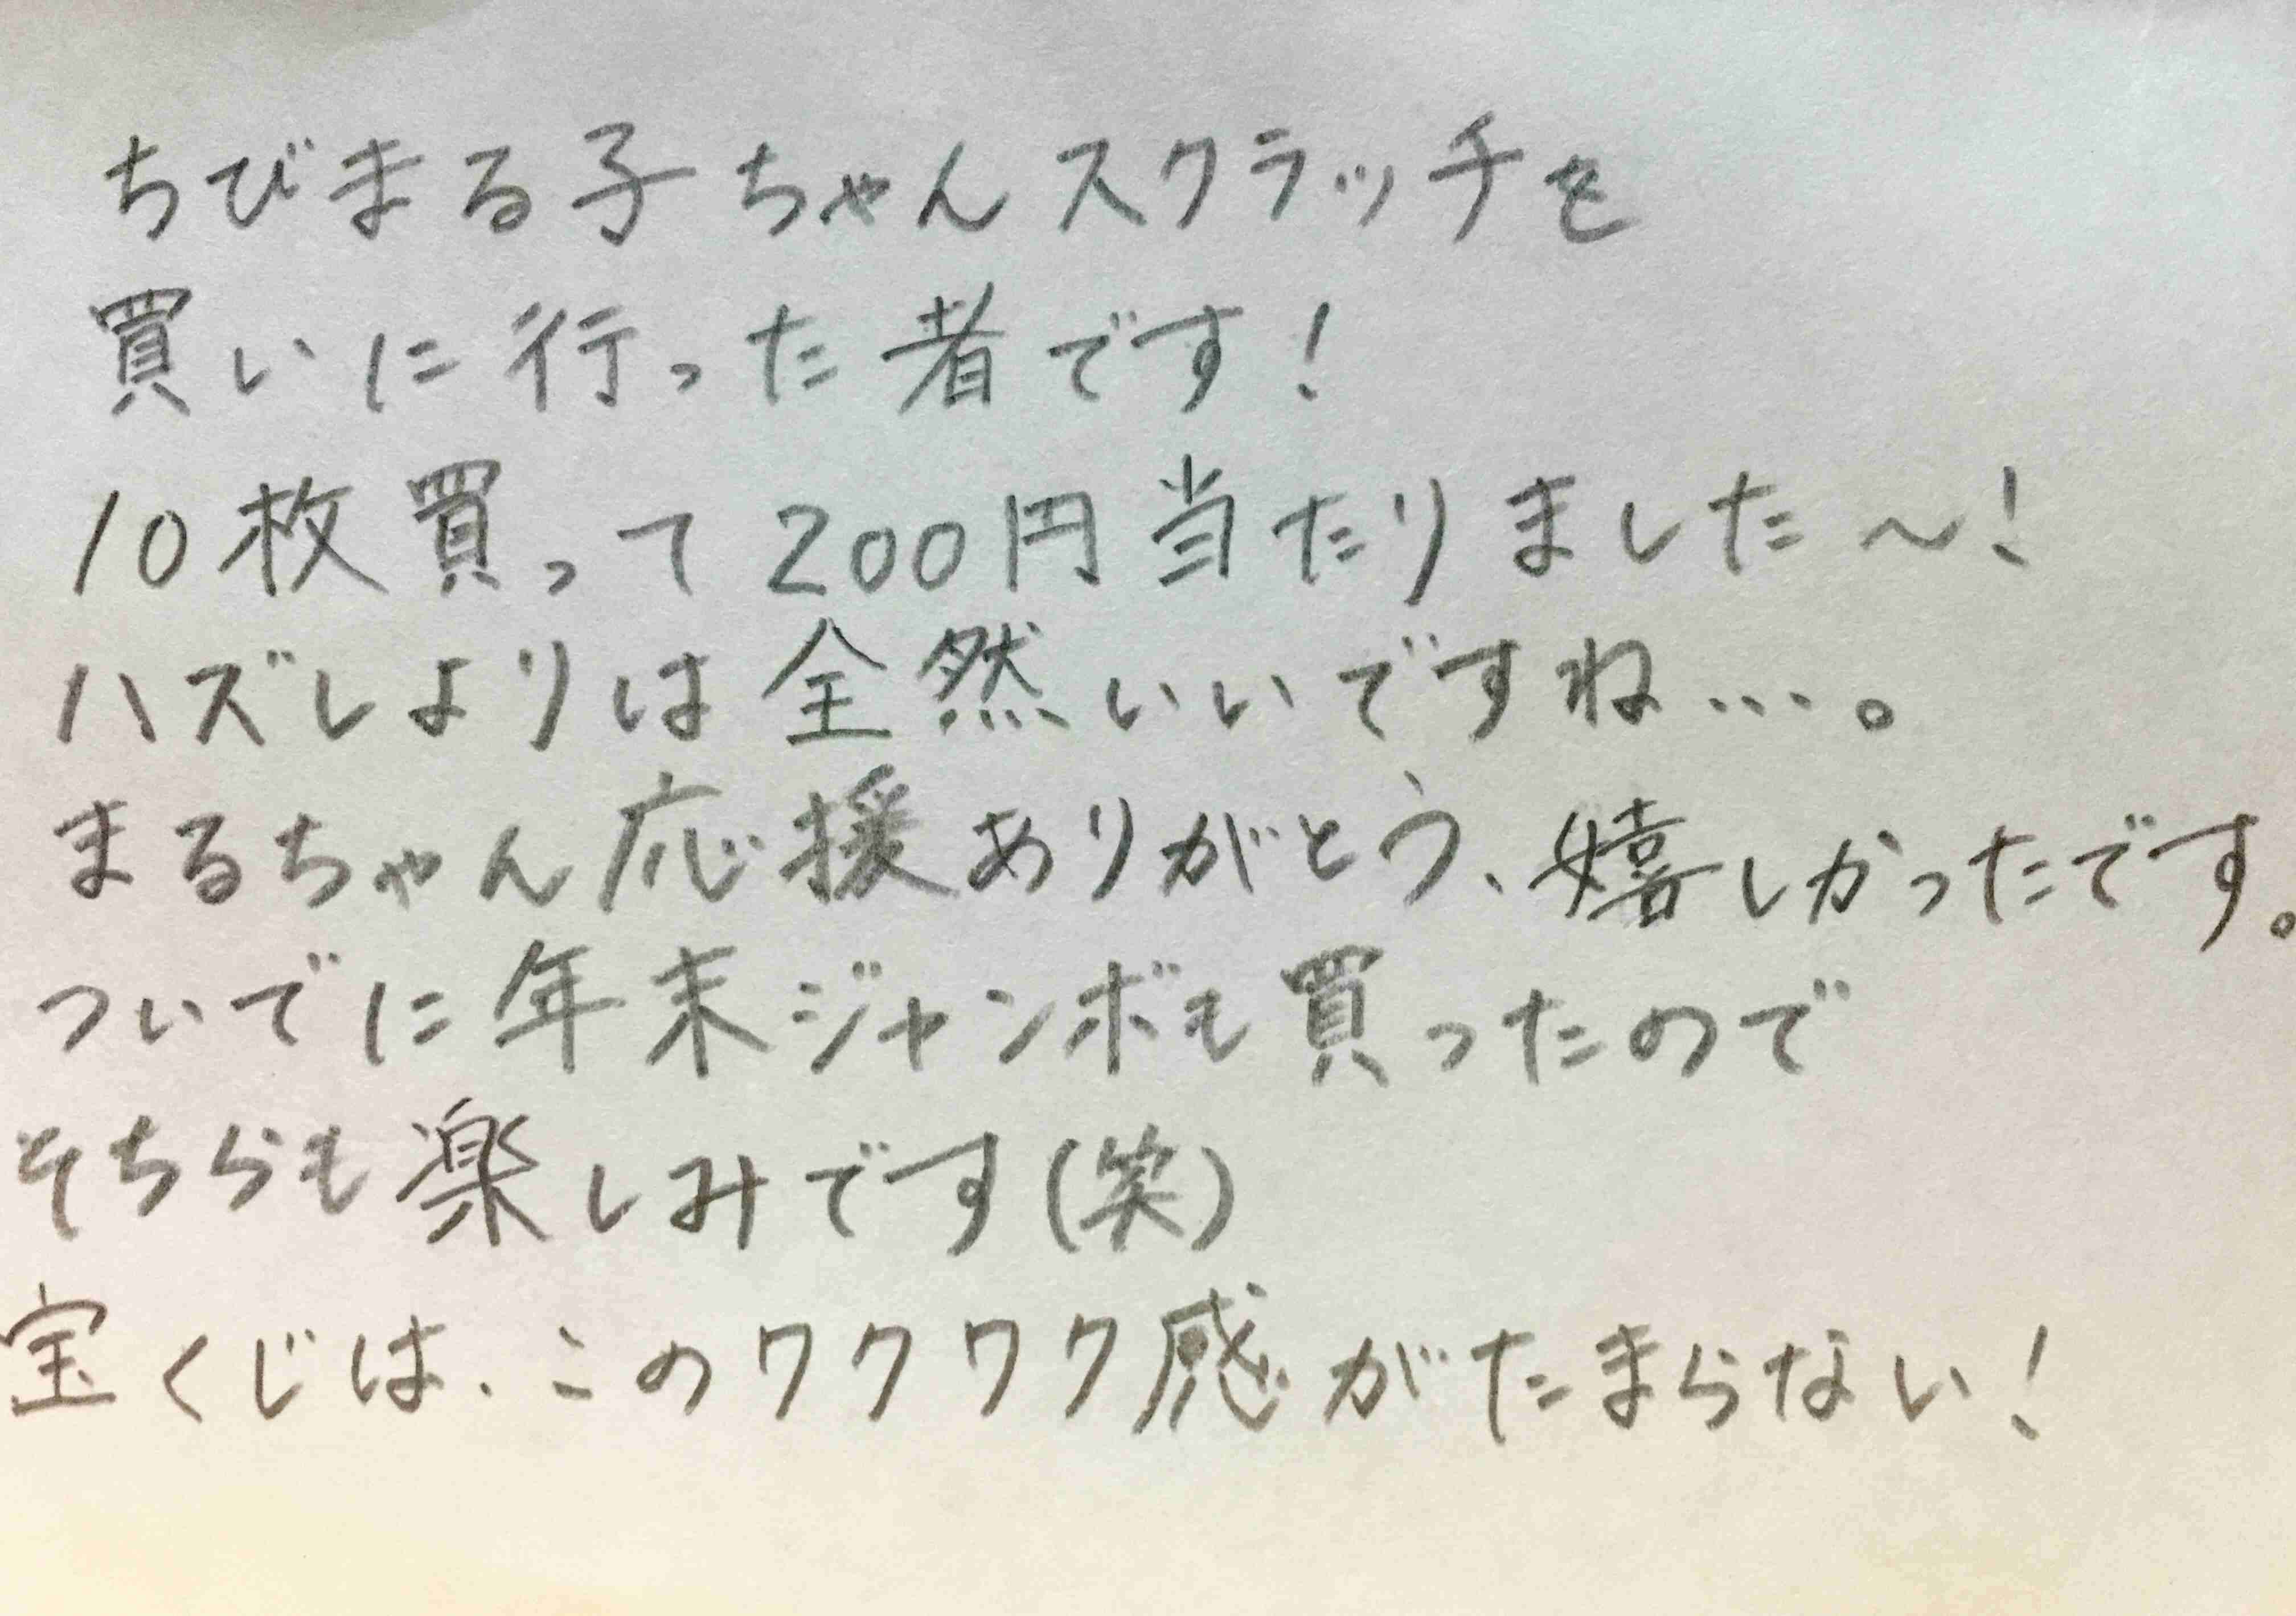 ちびまる子ちゃんスクラッチを
買いに行った者です!
10枚買って200円当たりました～!
ハズレよりは全然いいですね…。
まるちゃん応援ありがとう、嬉しかったです。
ついでに年末ジャンボも買ったので
そちらも楽しみです(笑)
宝くじは、このワクワク感がたまらない!